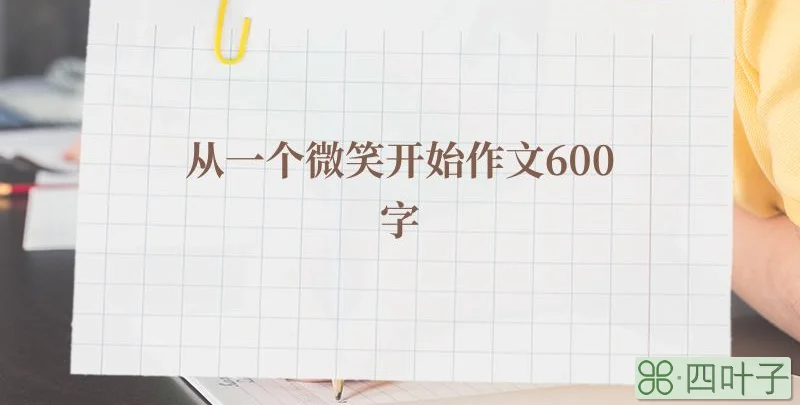 从一个微笑开始作文600
字
四叶子